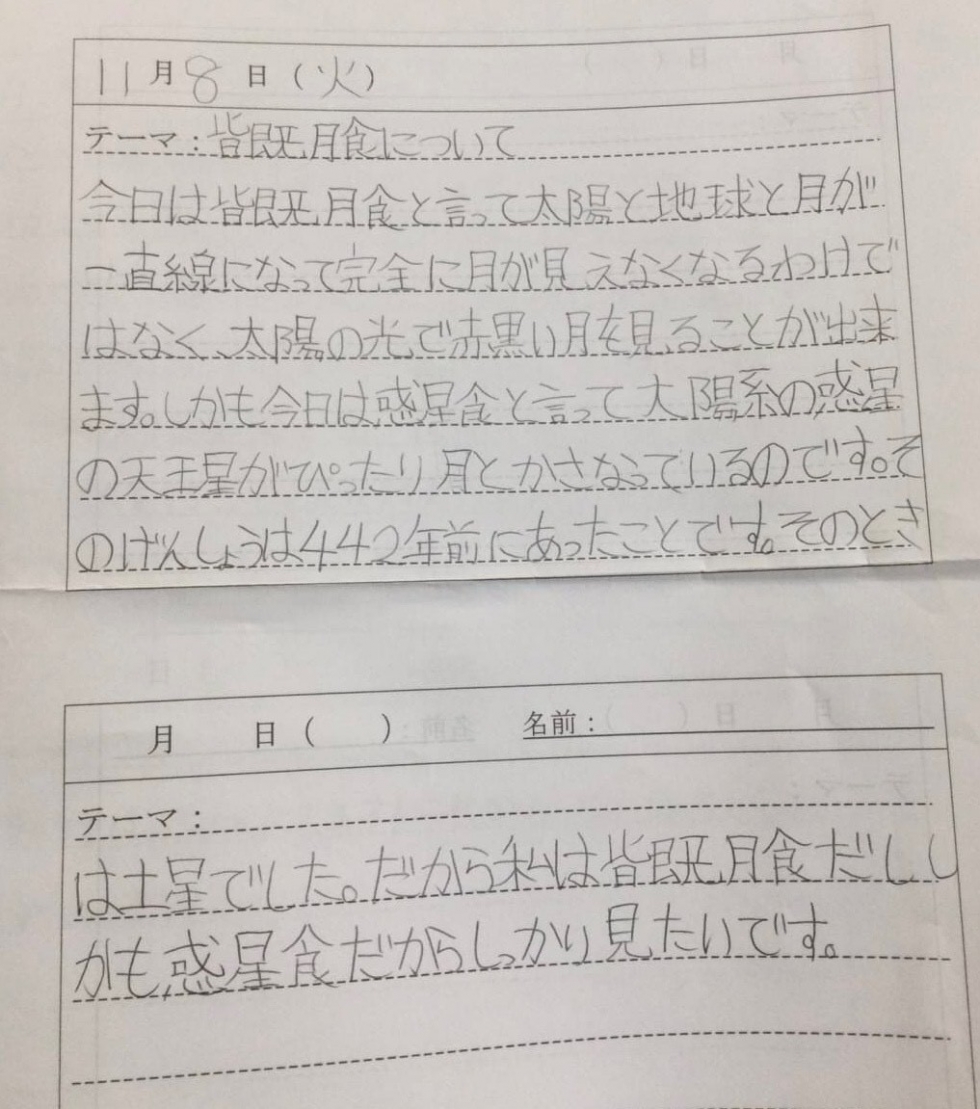 11月8日(火)
テーマ:皆既月食について
今日は皆既月食と言って太陽と地球と月が
一直線になって完全に月が見えなくなるわけで
はなく、太陽の光で赤黒い月を見ることが出来
ます。しかも今日は惑星食と言って太陽系の惑星
の天王星がぴったり月とかさなっているのです。そ
のげんしょうは442年前にあったことです。そのとき
月 日( ) 名前:
テーマ:
は土星でした。だから私は皆既月食だしし
かも惑星食だからしっかり見たいです。